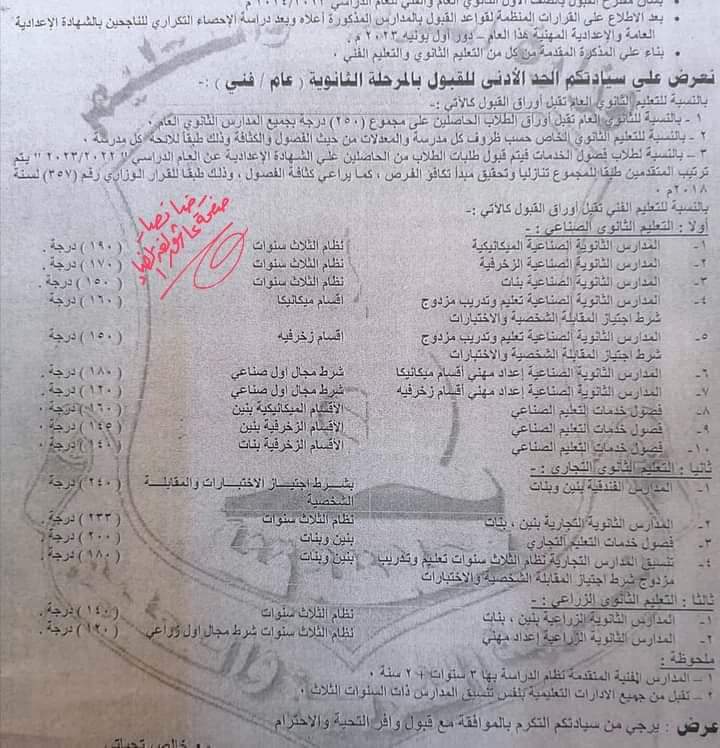 بشأن مقترح القبول بالصف الأول الثانوي العام والفني للعام الدراسي ٢٠٢٤/٢٠٢٣م .
• بعد الاطلاع على القرارات المنظمة لقواعد القبول بالمدارس المذكورة أعلاه وبعد دراسة الإحصاء التكراري للناجحين بالشهادة الإعدادية
العامة والإعدادية المهنية هذا العام – دور أول يونيه ٢٠٢٣م .
• بناء على المذكرة المقدمة من كل من التعليم الثانوي والتعليم الفني .
نعرض على سيادتكم الحد الأدنى للقبول بالمرحلة الثانوية ( عام / فني ) :-
بالنسبة للتعليم الثانوي العام تقبل أوراق القبول كالآتي :-
١ - بالنسبة للثانوي العام تقبل أوراق الطلاب الحاصلين على مجموع (٢٥٠) درجة بجميع المدارس الثانوي العام .
٢ - بالنسبة للتعليم الثانوي الخاص حسب ظروف كل مدرسة والمعدلات من حيث الفصول والكثافة وذلك طبقاً للائحة كل مدرسة .
٣ - بالنسبة لطلاب فصول الخدمات فيتم قبول طلبات الطلاب من الحاصلين على الشهادة الإعدادية عن العام الدراسي " ٢٠٢٣/٢٠٢٢ " يتم
ترتيب المتقدمين طبقا للمجموع تنازلياً وتحقيق مبدأ تكافؤ الفرص ، كما يراعي كثافة الفصول ، وذلك طبقاً للقرار الوزاري رقم (٣٥٧) لسنة
٢٠١٨م .
بالنسبة للتعليم الفني تقبل أوراق القبول كالآتي :-
أولا : التعليم الثانوي الصناعي :-
١- المدارس الثانوية الصناعية الميكانيكية نظام الثلاث سنوات ( ١٩٠ ) درجة .
٢- المدارس الثانوية الصناعية الزخرفية نظام الثلاث سنوات ( ١٧٠ ) درجة .
٣- المدارس الثانوية الصناعية بنات نظام الثلاث سنوات ( ١٥٠ ) درجة .
٤- المدارس الثانوية الصناعية تعليم وتدريب مزدوج أقسام ميكانيكا ( ١٦٠ ) درجة .
شرط اجتياز المقابلة الشخصية والاختبارات
٥- المدارس الثانوية الصناعية تعليم وتدريب مزدوج أقسام زخرفيه ( ١٥٠ ) درجة .
شرط اجتياز المقابلة الشخصية والاختبارات
٦- المدارس الثانوية الصناعية إعداد مهني أقسام ميكانيكا شرط مجال اول صناعي ( ١٨٠ ) درجة .
٧- المدارس الثانوية الصناعية إعداد مهني أقسام زخرفيه شرط مجال اول صناعي ( ١٢٠ ) درجة .
٨- فصول خدمات التعليم الصناعي الأقسام الميكانيكية بنين ( ١٦٠ ) درجة .
٩- فصول خدمات التعليم الصناعي الأقسام الزخرفية بنين ( ١٤٥ ) درجة .
١٠- فصول خدمات التعليم الصناعي الأقسام الزخرفية بنات ( ١٤٠ ) درجة .
ثانيا : التعليم الثانوي التجاري :-
١- المدارس الفندقية بنين وبنات بشرط اجتياز الاختبارات والمقابلة الشخصية ( ٢٤٠ ) درجة .
٢- المدارس الثانوية التجارية بنين ، بنات نظام الثلاث سنوات ( ٢٣٣ ) درجة .
٣- فصول خدمات التعليم التجاري بنين وبنات ( ٢٠٠ ) درجة .
٤- تنسيق المدارس التجارية نظام الثلاث سنوات تعليم وتدريب بنين وبنات ( ١٨٠ ) درجة .
مزدوج شرط اجتياز المقابلة الشخصية والاختبارات
ثالثا : التعليم الثانوي الزراعي :-
١- المدارس الثانوية الزراعية بنين ، بنات نظام الثلاث سنوات ( ١٤٠ ) درجة .
٢- المدارس الثانوية الزراعية إعداد مهني نظام الثلاث سنوات شرط مجال اول زراعي ( ١٢٠ ) درجة .
ملحوظة :
١ – المدارس الفنية المتقدمة نظام الدراسة بها ٣ سنوات + ٢ سنة .
٢ – تقبل من جميع الادارات التعليمية بنفس تنسيق المدارس ذات السنوات الثلاث .
عرض : يرجي من سيادتكم التكرم بالموافقة مع قبول وافر التحية والاحترام
مع خالص تحياتي